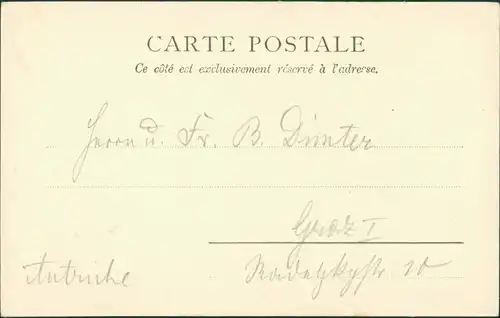 CARTE POSTALE
Ce côté est exclusivement réservé à l'adresse.
Herrn u. Fr. B. Dimter
Graz I
Radetzkystr 10
Autriche